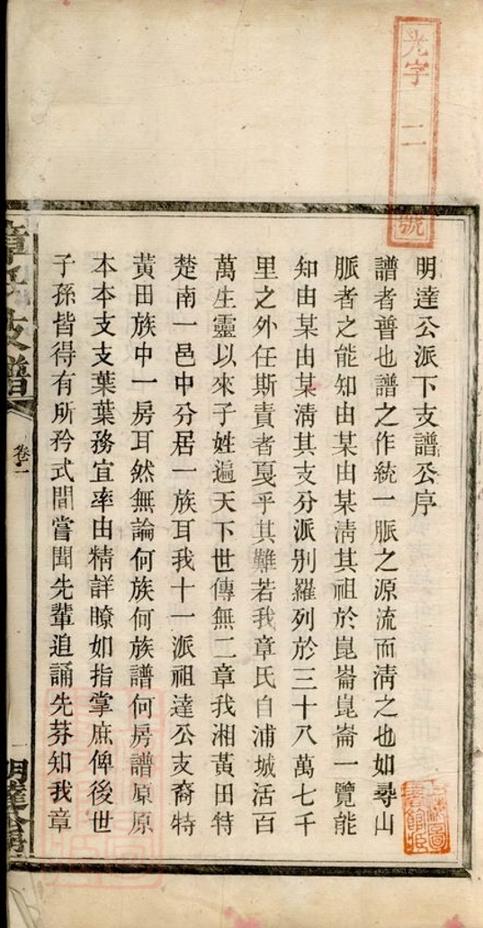 光字二號
明達公派下支譜公序
譜者普也譜之作統一脈之源流而淸之也如尋山
脈者之能知由某由某淸其祖於崑崙崑崙一覽能
知由某由某淸其支分派別羅列於三十八萬七千
里之外任斯責者戛乎其難若我章氏自浦城活百
萬生靈以來子姓遍天下世傳無二章我湘黃田特
楚南一邑中分居一族耳我十一派祖達公支裔特
黃田族中一房耳然無論何族何族譜何房譜原原
本本支支葉葉務宜率由精詳瞭如指掌庶俾後世
子孫皆得有所矜式間嘗聞先輩追誦先莽知我章
章氏支譜
卷一
一
明達公房